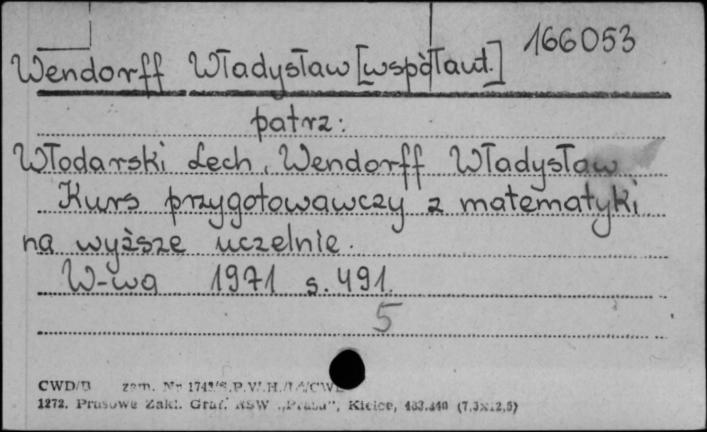 166053
Wendorff Władysław [współaut.]
patrz:
Włodarski Lech, Wendorff Władysław
Kurs przygotowawczy z matematyki
na wyższe uczelnie.
W-wa 1971 s. 491.
5
CWD/B zam. Nr
1272. Prasowe Zakł. Graf. RSW „Prasa", Kielce,